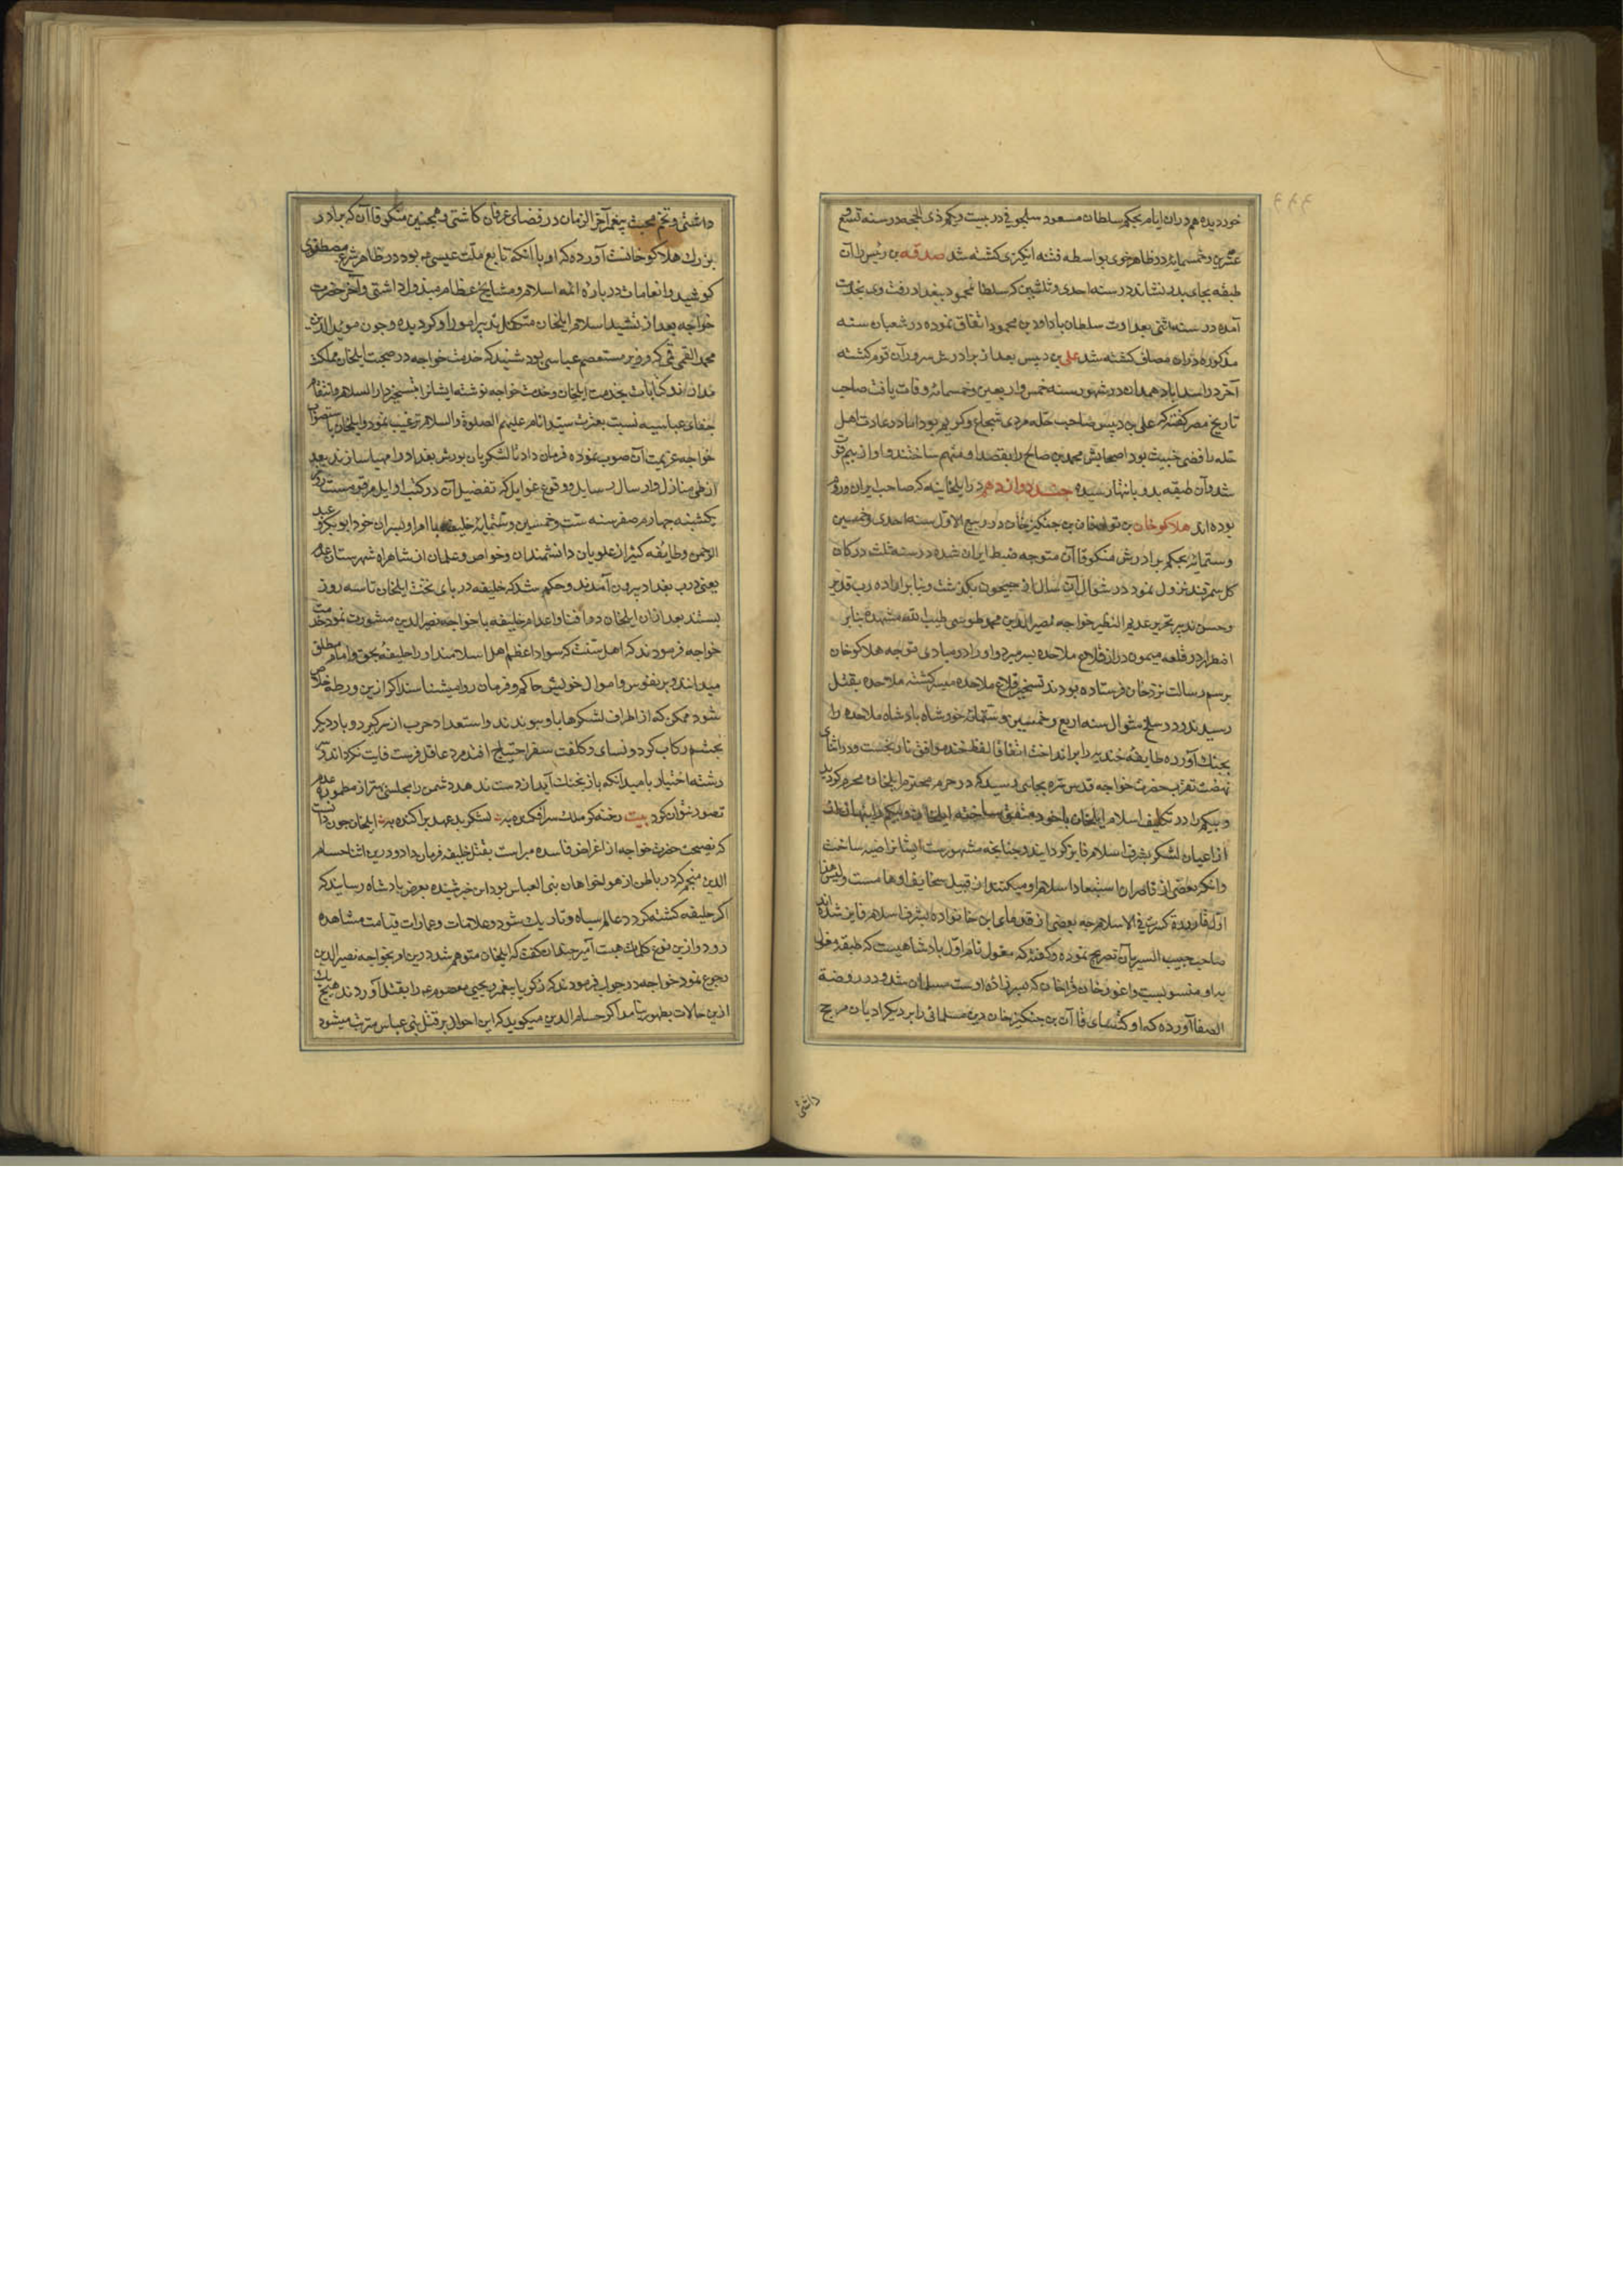 خوردیده هم دران ایام بحکم سلطان مسعود سلجوقی در بیست ویکم ذی الحجه در سنه تسع و
عشرین وخمسمایه در ظاهر خوی بواسطه فتنه انگیزی کشته شد صدقه بن دبیس را آن
طبقه بجای پدر نشاندند در سنه احدی وثلثین که سلطان محمود ببغداد رفت وی بخدمت
آمده در سنه اثنی بعداوت سلطان با داود بن محمود اتفاق نموده در شعبان سنه
مذکوره دران مصاف کشته شد علی بن دبیس بعد از برادرش سرور آن قوم کشته
آخر در اسداباد همدان در شهور سنه خمس واربعین وخمسمائه وفات یافت صاحب
تاریخ مصر گفته که علی بن دبیس صاحب حله مردی شجاع وکریم بود اما در عادت اهل
حله رافضی خبیث بود اصحابش محمد بن صالح را بقصد او متهم ساختند و او از بیم
شد وآن طبقه بدو بانتها رسیده جند دوازدهم در ایلخانیه که صاحب ایران وروم
بوده اند هلاکو خان بن تولی خان بن چنگیز خان در ربیع الاول سنه احدی وخمسین
وستمایه بحکم برادرش منکو قاآن متوجه ضبط ایران شده در سنه ثلث در کان
کل سمرقند نزول نمود در شوال آن سال از جیحون بگذشت وبنا بر اراده رب قدیر
وحسن تدبیر نحریر عدیم النظیر خواجه نصیر الدین محمد طوسی طیب الله مشهده که بنابر
اضطرار در قلعه میمون در از قلاع ملاحده بسر میبرد و او را در مبادی توجه هلاکو خان
برسم رسالت نزد خان فرستاده بودند تسخیر قلاع ملاحده میسر گشته ملاحده بقتل
رسیدند ودر سلخ شوال سنه اربع وخمسین وستمائه خورشاه پادشاه ملاحده را
بچنگ آورده طایفه خندیه را برانداخت اتفاقا لفظ خند موافق تاریخست ودر اثنای
نهضت تقرب حضرت خواجه قدس سره بجایی رسید که در حرم محترم ایلخان محرم گردید
وبیگم را در تکلیف اسلام ایلخان با خود متفق ساخته ایلخان وبیگم را پنهان
از اعیان لشکر بشرف اسلام فایز گردانیدند چنانچه مشهورست
وانکه بعضی از قاصران استبعاد اسلام او میکنند از قبیل سخایف اوهامست ولیس هذا
اول قارورة کسرت فی الاسلام چه بعضی از قدمای این خانواده بشرف اسلام فایز شده اند
صاحب حبیب السیر بآن تصریح نموده وگفته که مغول نام اول پادشاهیست که طبقه مغول
بداو منسوبست واغوز خان بن قراخان که نبیره زاده اوست مسلمان شد ودر روضة
الصفا آورده که اوکتای قاآن بن چنگیز خان دین مسلمانی را بر دیگر ادیان مرجح
داشتی
داشتی وتخم محبت پیغمبر آخر الزمان در فضای عرفان کاشتی وهمچنین منکو قاآن که برادر
بزرگ هلاکو خانست آورده که او با آنکه تابع ملت عیسی بود در ظاهر شرع مصطفوی
کوشید وانعامات درباره ائمه اسلام ومشایخ عظام مبذول داشتی وآخر حضرت
خواجه بعد از تشیید اسلام ایلخان متکفل تدبیر امور او گردیده وچون موید الدین
محمد القمی که وزیر مستعصم عباسی بود شنید که خدمت خواجه در صحبت ایلخان مملکت
مدار اند کتابات بخدمت ایلخان وخدمت خواجه نوشته ایشانرا بتسخیر دار السلام وانتقام
جفای عباسیه نسبت بعترت سید انام علیهم الصلوة والسلام ترغیب نمود وایلخان باستصواب
خواجه عزیمت آن صوب نموده فرمان داد تا لشکریان یورش بغداد را مهیا سازند بعد
از طی منازل وارسال رسایل ووقوع غوایل که تفصیل آن در کتب اوایل مرقومست روز
یکشنبه چهارم صفر سنه ست وخمسین وستمایه خلیفه با امرا وپسران خود ابوبکر و عبد
الرحمن وطایفه کثیر از علویان دانشمندان وخواص وغلمان از شاهراه شهرستان عدم
یعنی درب بغداد بیرون آمدند وحکم شد که خلیفه در پای تخت ایلخان تا سه روز
بستند بعد ازان ایلخان در افنا واعدام خلیفه با خواجه نصیر الدین مشورت نمود خدمت
خواجه فرمودند که اهل سنت که سواد اعظم اهل اسلامند او را خلیفه بحق وامام مطلق
میدانند وبر نفوس واموال خویش حاکم وفرمان روا میشناسند اگر ازین ورطه خلاص
شود ممکن که از اطراف لشکرها باو پیوندند واستعداد حرب از سر گیرد وبار دیگر
بتجشم رکاب گردون سای وکلفت سفر احتیاج افتد مرد عاقل فرصت فایت نگرداند و
رشته اختیار بامید آنکه باز بچنگ آید از دست ندهد دشمن را مجلسی بهتر از مطموره عدم
تصور نتوان کرد بیت رخنه گر ملک سرافکنده به لشکر بد عهد پراکنده به ایلخان چون دانست
که نصیحت حضرت خواجه از اغراض فاسده مبراست بقتل خلیفه فرمان داد ودرین اثنا حسام
الدین منجم که در باطن از هواخواهان بنی العباس بود این خبر شنیده بعرض پادشاه رسانید که
اگر خلیفه کشته گردد عالم سیاه وتاریک شود وعلامات وامارات قیامت مشاهده
رود وازین نوع کلمات هیبت آمیز چندان بگفت که ایلخان متوهم شد ودرین امر بخواجه نصیر الدین
رجوع نمود خواجه در جواب فرمودند که زکریا پیغمبر ویحیی معصوم را بقتل آوردند هیچ یک
ازین حالات بظهور نیامد اگر حسام الدین میگوید که این احوال بر قتل بنی عباس مترتب میشود